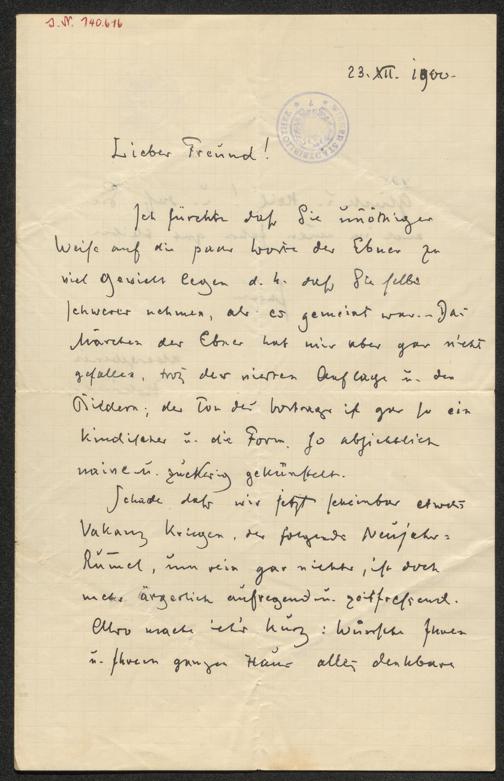 J.N. 140.616
23. XII. 1900.
WIENER STADTBIBLIOTHEK
Lieber Freund!
Ich fürchte daß Sie unnöthiger
Weise auf die paar Worte der Ebner zu
viel Gewicht legen d. h. daß Sie selbe
schwerer nehmen, als es gemeint war. – Das
Märchen der Ebner hat mir aber gar nicht
gefallen, trotz der vierten Auflage u. den
Bildern; der Ton des Vortrags ist gar so ein
kindischer u. die Form so absichtlich
naive u. zuckerig gekünstelt.
Schade daß wir jetzt scheinbar etwas
Vakanz kriegen, der folgende Neujahr=
Rummel, um rein gar nichts, ist doch
mehr ärgerlich aufregend u. zeitfressend.
Also mache ich's kurz: Wünsche Ihnen
u. Ihrem ganzen Haus alles denkbare